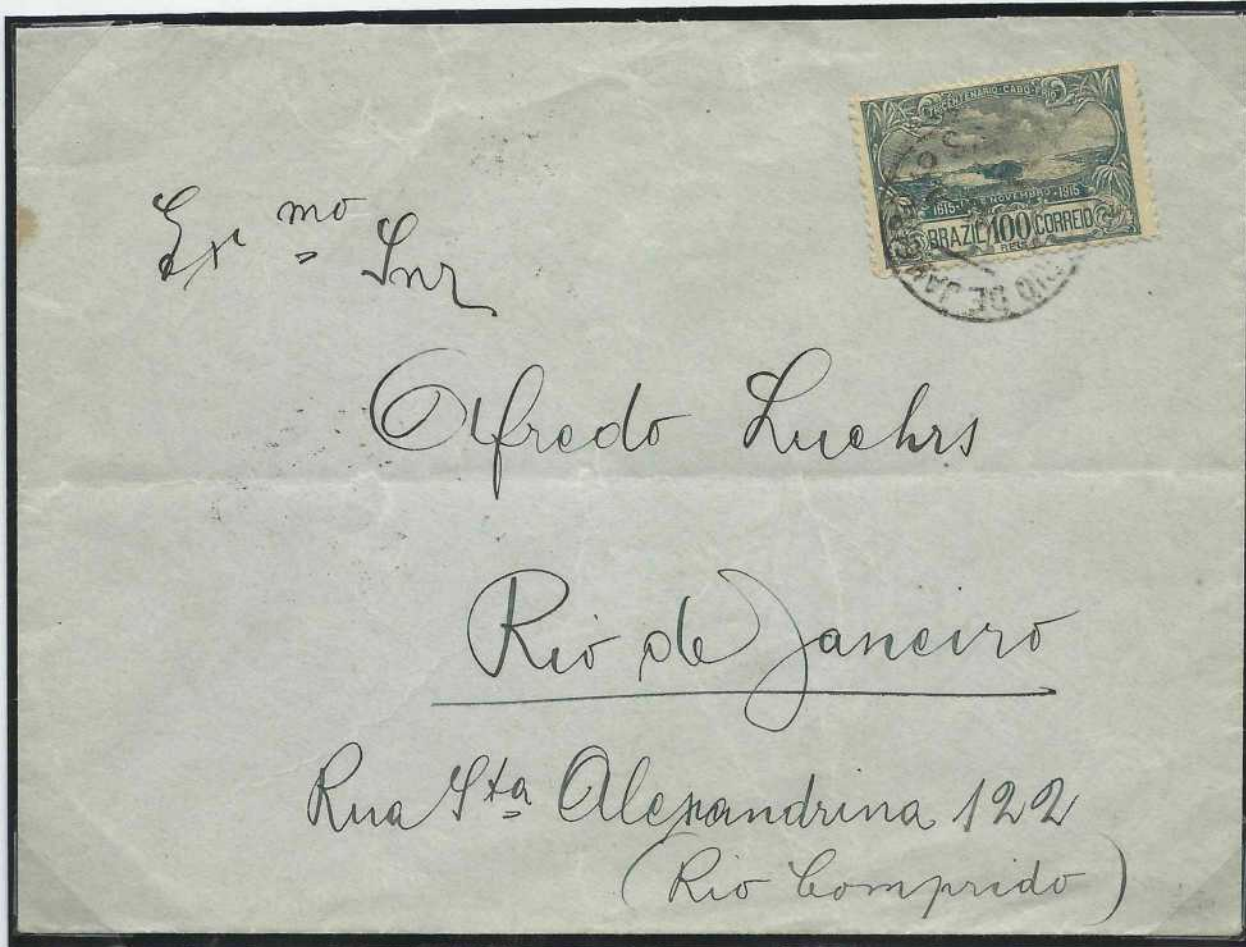 TRICENTENARIO·CABO·FRIO
1615·NOVEMBRO·1915
BRAZIL 100 CORREIO
REIS
RIO DE JANEIRO
Ex mo Snr
Alfredo Luehrs
Rio de Janeiro
Rua Sta Alexandrina 122
(Rio Comprido)